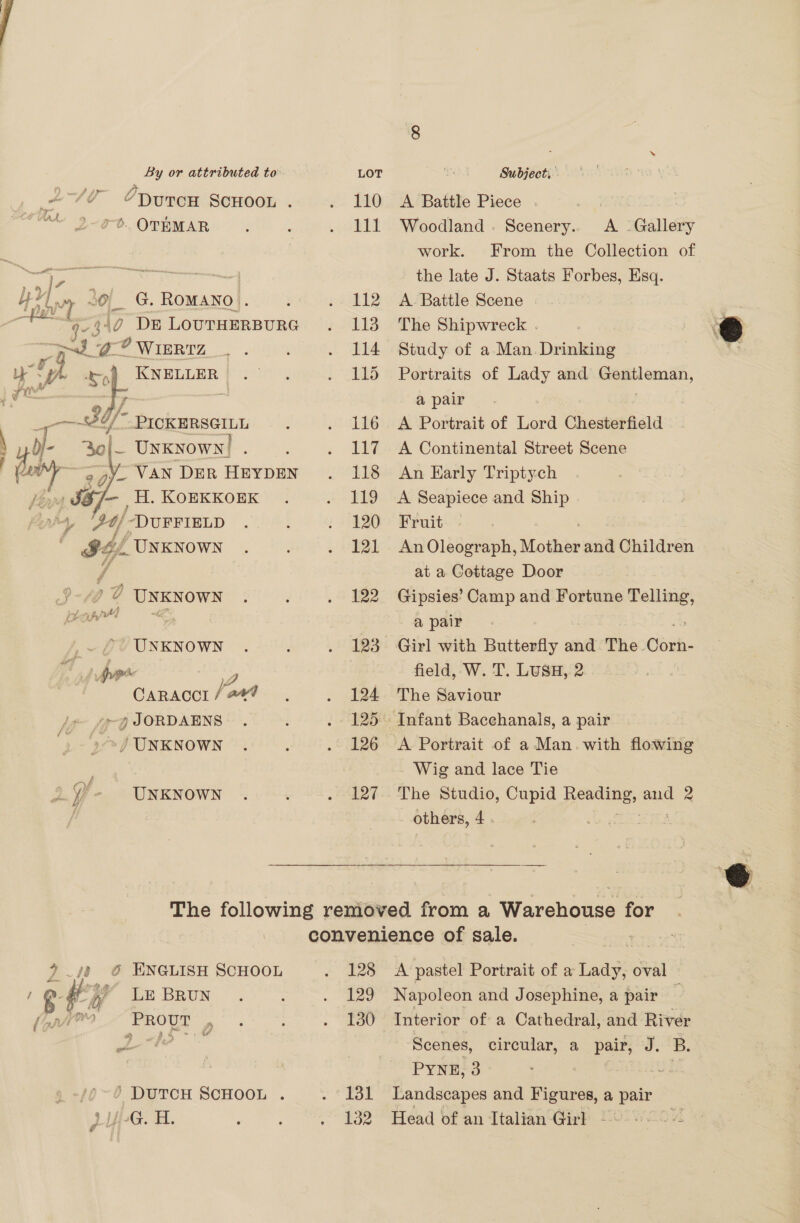 8
By or attributed to LOT Subject.
2-10 0 DUTCH SCHOOL . . 110 A Battle Piece .
2-0 0. OTÉMAR . . . 111 Woodland Scenery. A Gallery
work. From the Collection of
the late J. Staats Forbes, Esq.
30/- G. ROMANO . . . 112 A Battle Scene .
DE LOUTHERBURG . 113 The Shipwreck .
WIERTZ . . . 114 Study of a Man Drinking
KNELLER . . . 115 Portraits of Lady and Gentleman,
a pair .
PICKERSGILL . 116 A Portrait of Lord Chesterfield
30/- UNKNOWN . . . 117 A Continental Street Scene
VAN DER HEYDEN . 118 An Early Triptych
H. KOEKKOEK . . 119 A Seapiece and Ship
DUFFIELD . . . 120 Fruit .
UNKNOWN . . . 121 An Oleograph, Mother and Children
at a Cottage Door
UNKNOWN . . . 122 Gipsies' Camp and Fortune Telling,
a pair .
UNKNOWN . . . 123 Girl with Butterfly and The Corn-
field, W. T. LUSH, 2
CARACCI . . 124 The Saviour
JORDAENS . . . 125 Infant Bacchanals, a pair
UNKNOWN . . . 126 A Portrait of a Man with flowing
Wig and lace Tie
UNKNOWN . . . 127 The Studio, Cupid Reading, and 2
others, 4 .
The following removed from a Warehouse for
convenience of sale.
ENGLISH SCHOOL . 128 A pastel Portrait of a Lady, oval
LE BRUN . . . 129 Napoleon and Josephine, a pair
PROUT . . . 130 Interior of a Cathedral, and River
Scenes, circular, a pair, J. B.
PYNE, 3
DUTCH SCHOOL . . 131 Landscapes and Figures, a pair
G. H. . . . 132 Head of an Italian Girl